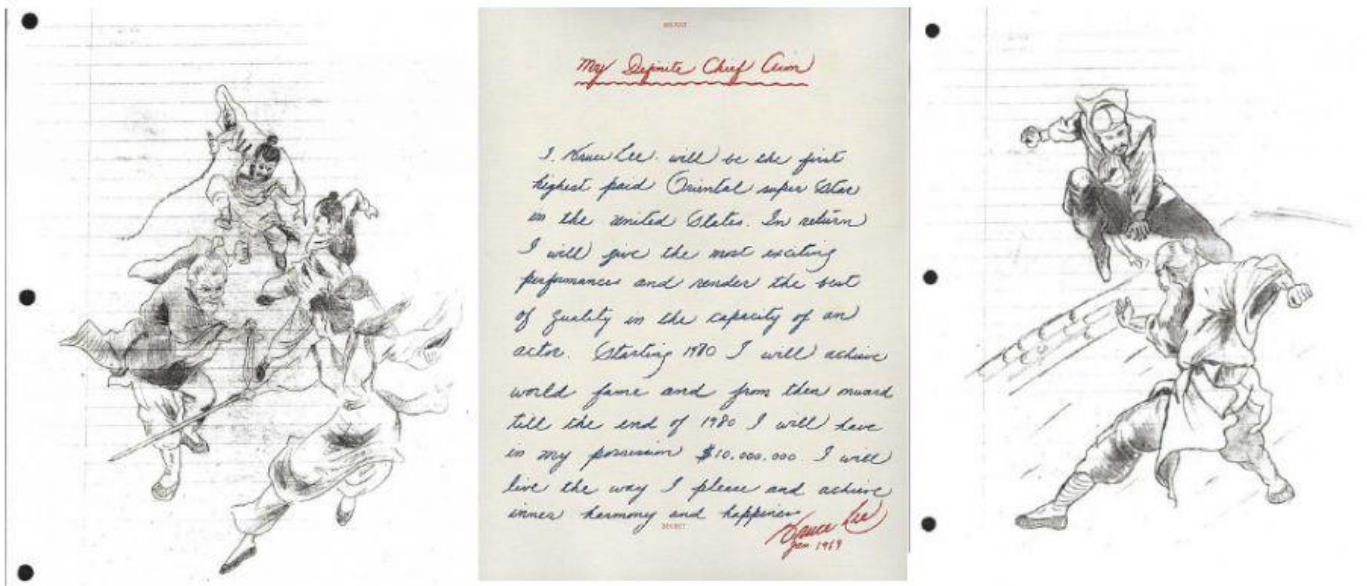 SECRET
My Definite Chief Aim
I, Bruce Lee, will be the first
highest paid Oriental super star
in the United States. In return
I will give the most exciting
performances and render the best
of quality in the capacity of an
actor. Starting 1970 I will achieve
world fame and from then onward
till the end of 1980 I will have
in my possession $10,000,000. I will
live the way I please and achieve
inner harmony and happiness
Bruce Lee
Jan. 1969
SECRET